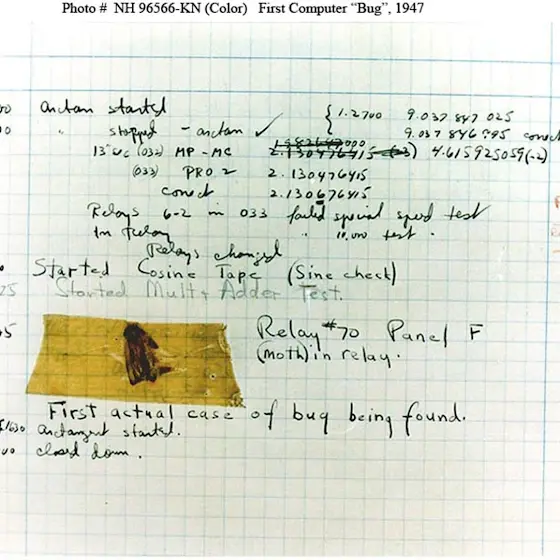 Photo # NH 96566-KN (Color) First Computer “Bug”, 1947
00 Arctan started { 1.2700 9.037 847 025
0 " stopped - arctan ✓ 9.037 846 995 conect
13" uc (032) MP - MC 2.130476415 4.615925059(-2)
(033) PRO 2 2.130476415
conect 2.130676415
Relays 6-2 in 033 failed special speed test
In relay " 10.000 test .
Relays changed
Started Cosine Tape (Sine check)
25 Started Mult + Adder Test.
5 Relay #70 Panel F
(Moth) in relay.
First actual case of bug being found.
1630 arctangent started.
00 closed down .